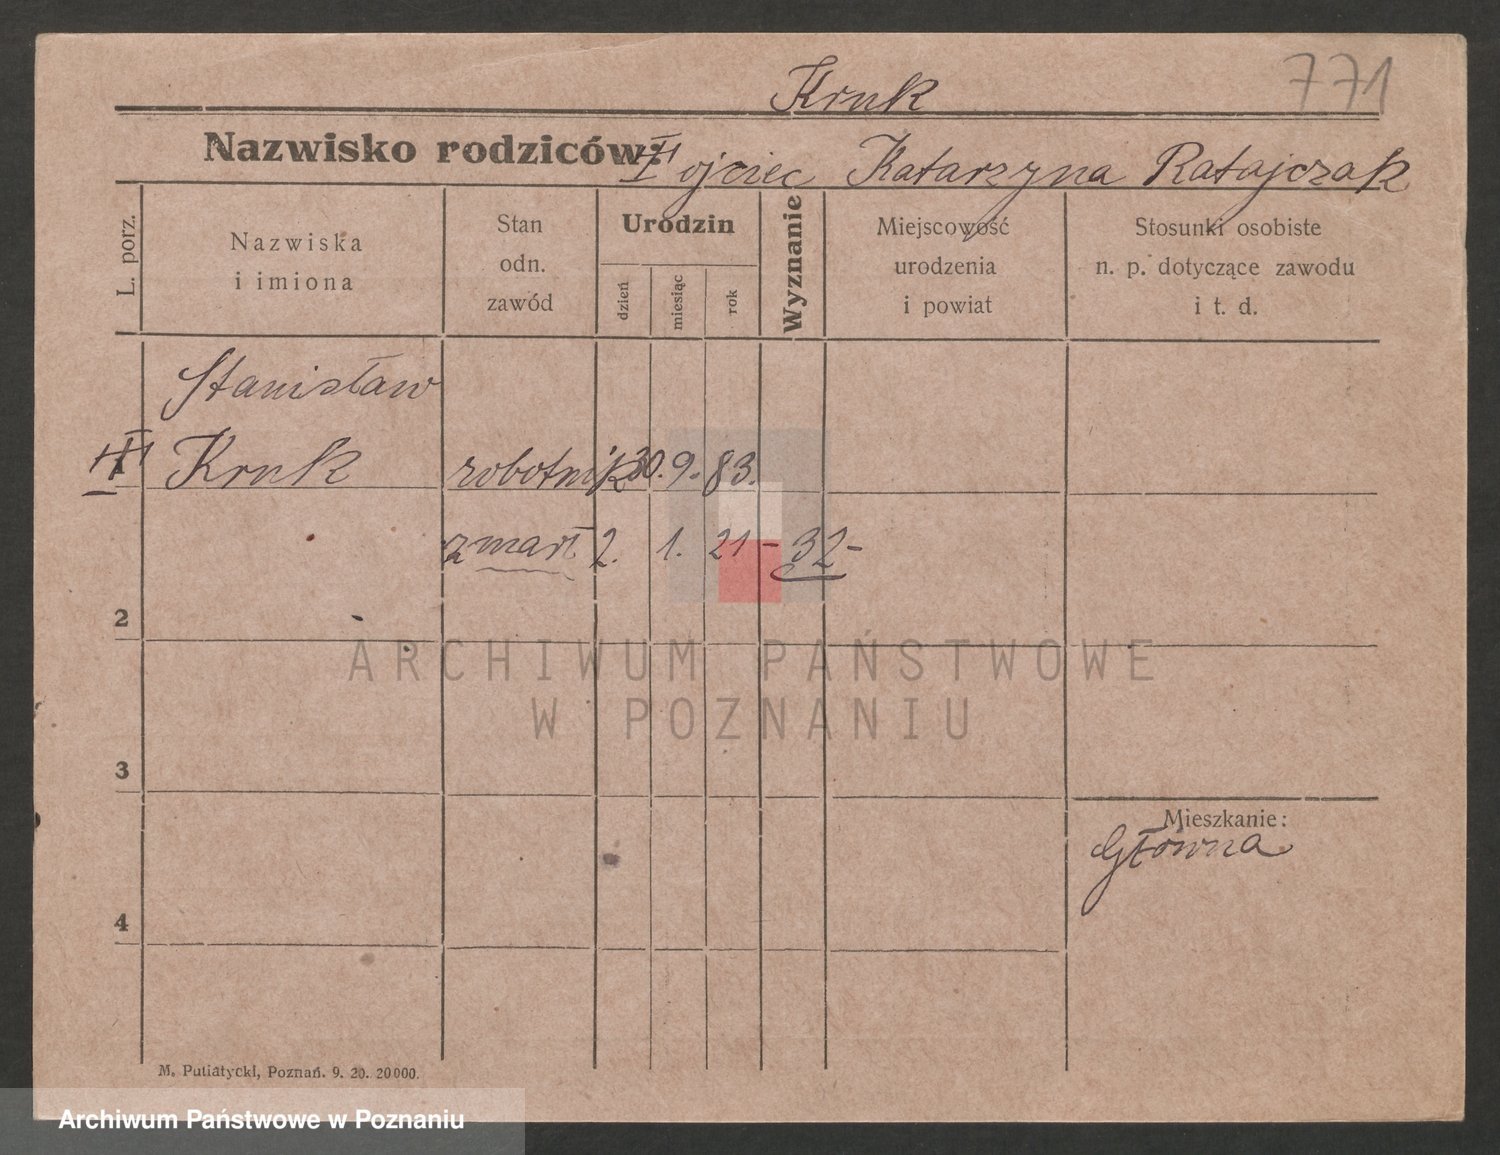 Kruk 771
Nazwisko rodziców: ojciec Katarzyna Ratajczak
L. porz.
Nazwiska
i imiona
Stan
odn.
zawód
Urodzin
dzień
miesiąc
rok
Wyznanie
Miejscowość
urodzenia
i powiat
Stosunki osobiste
n. p. dotyczące zawodu
i t. d.
Stanisław
Kruk robotnik 30. 9. 83.
zmarł 2. 1. 21 - 32 -
2
3
4
Mieszkanie:
Główna
M. Putiatycki, Poznań. 9. 20. 20000.
ARCHIWUM PAŃSTWOWE
W POZNANIU
Archiwum Państwowe w Poznaniu